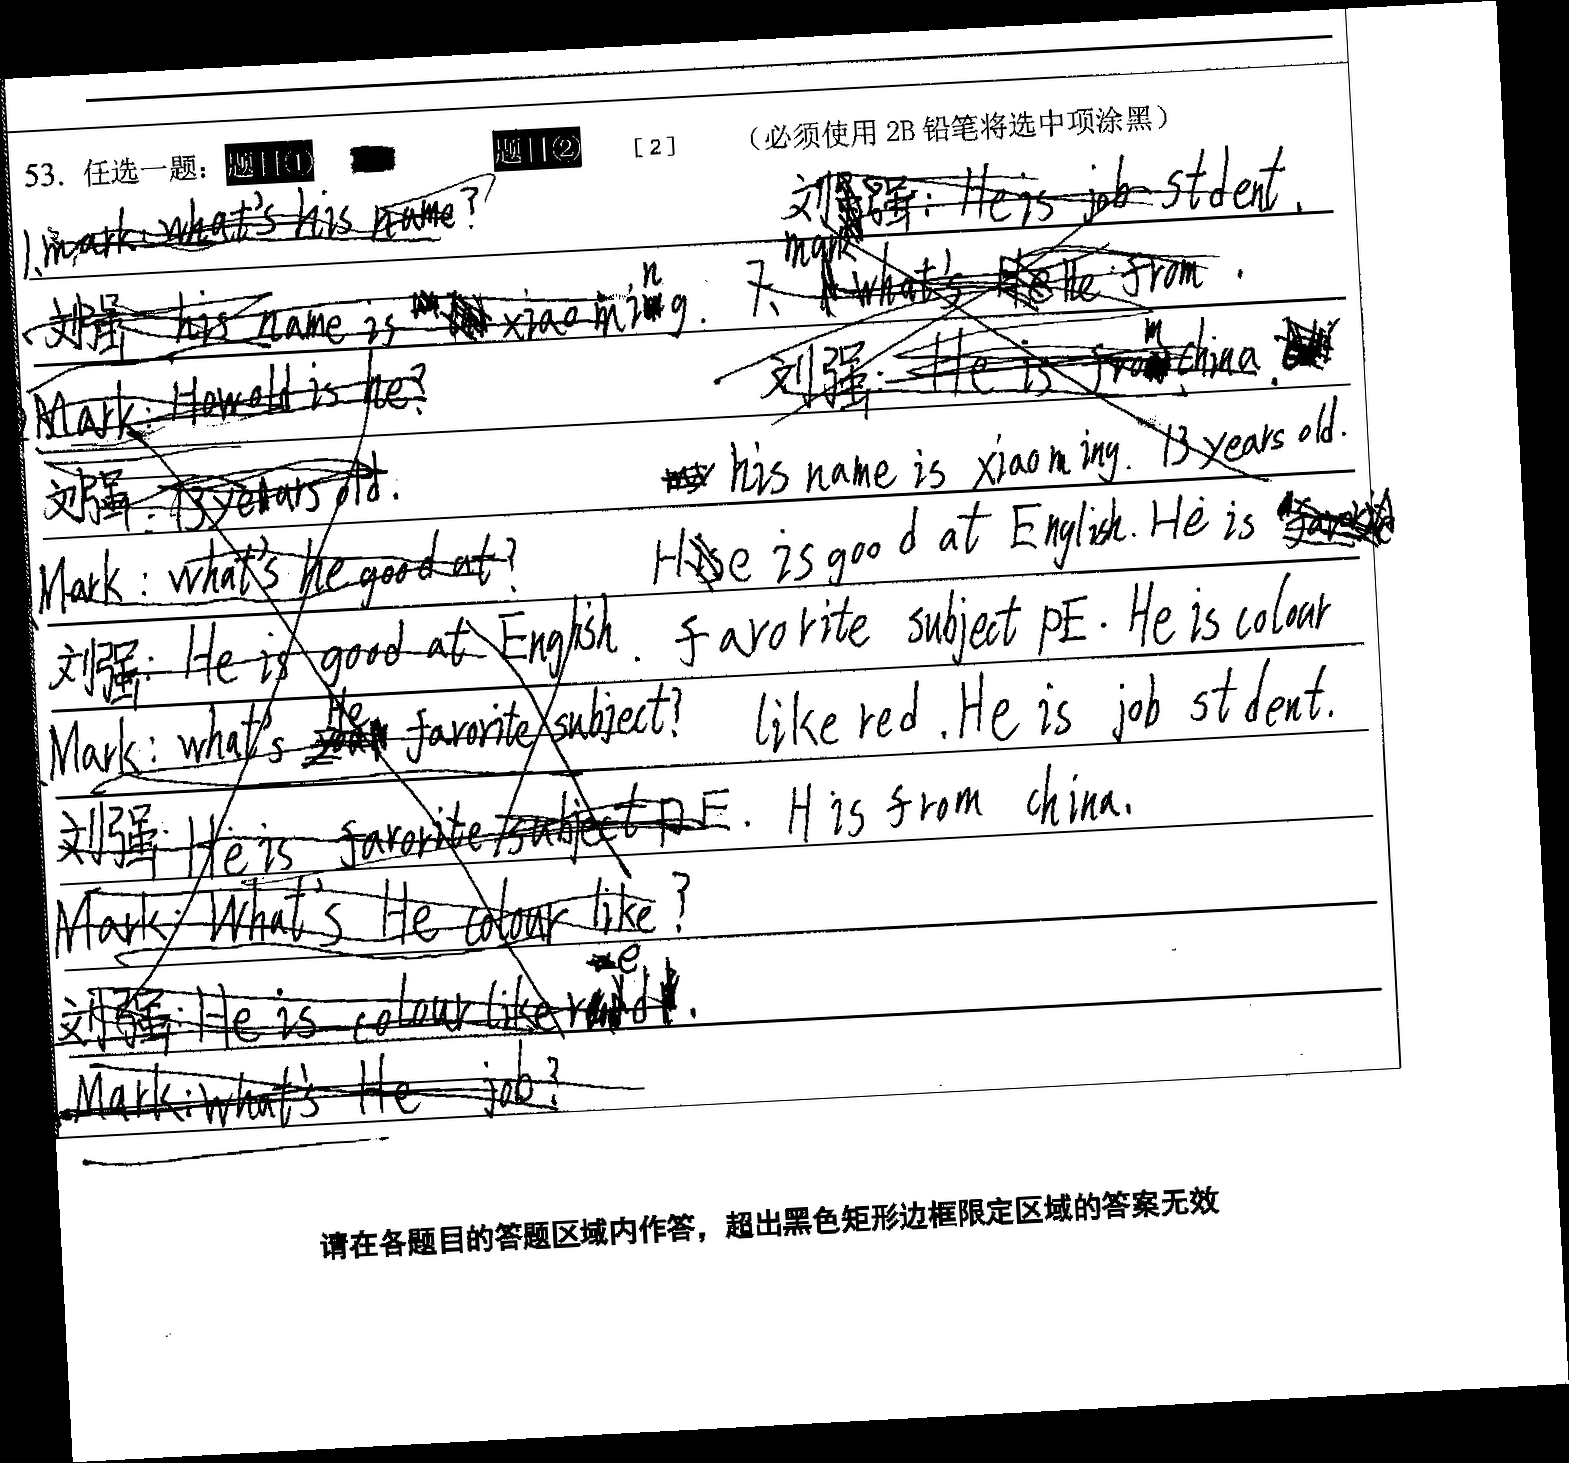 53. 任选一题: 题目(1) 题目(2) [2] (必须使用 2B 铅笔将选中项涂黑)
1、mark: what's his name?
刘强: his name is xiaoming.
Mark: How old is he?
刘强: 13 years old.
Mark: what's he good at?
刘强: He is good at English.
Mark: what's He favorite subject?
刘强: He is favorite subject PE.
Mark: What's He colour like?
刘强: He is colour like red.
Mark: what's He job?
刘强: He is job stdent.
mark what's He from.
刘强: He is from china.
his name is xiaoming. 13 years old.
He is good at English. He is
favorite subject PE. He is colour
like red. He is job stdent.
H is from china.
请在各题目的答题区域内作答，超出黑色矩形边框限定区域的答案无效